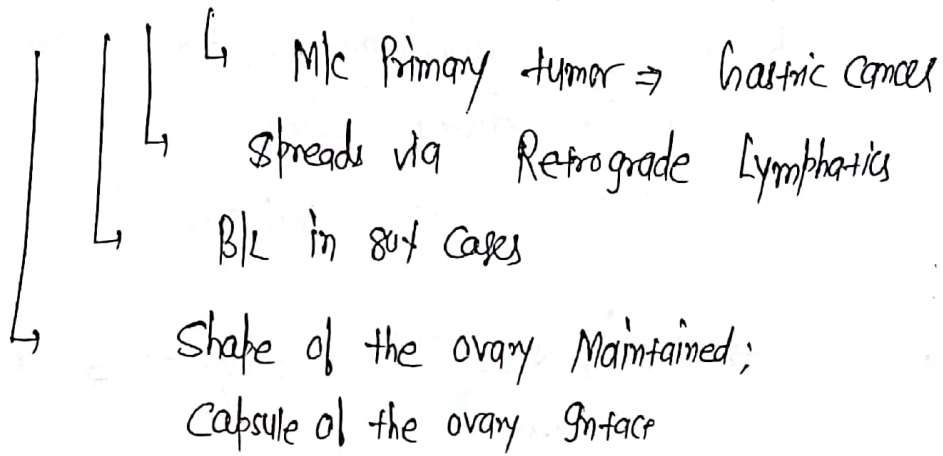 M/c Primary tumor ⇒ Gastric cancer
spreads via Retrograde Lymphatics
B/L in 80% Cases
Shape of the ovary Maintained;
Capsule of the ovary Intact